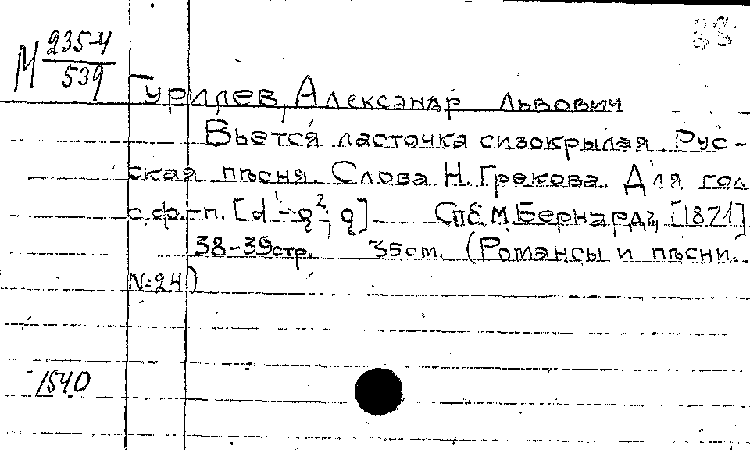 М 235-4
539
Гурилев, Александр Львович
Вьется ласточка сизокрылая. Рус-
ская пѣсня. Слова Н. Грекова. Для гол.
с ф.-п. [d¹-g², g]. Спб. М. Бернардъ, [1871]
38-39 стр. 35 см. (Романсы и пѣсни.
№ 24)
1540